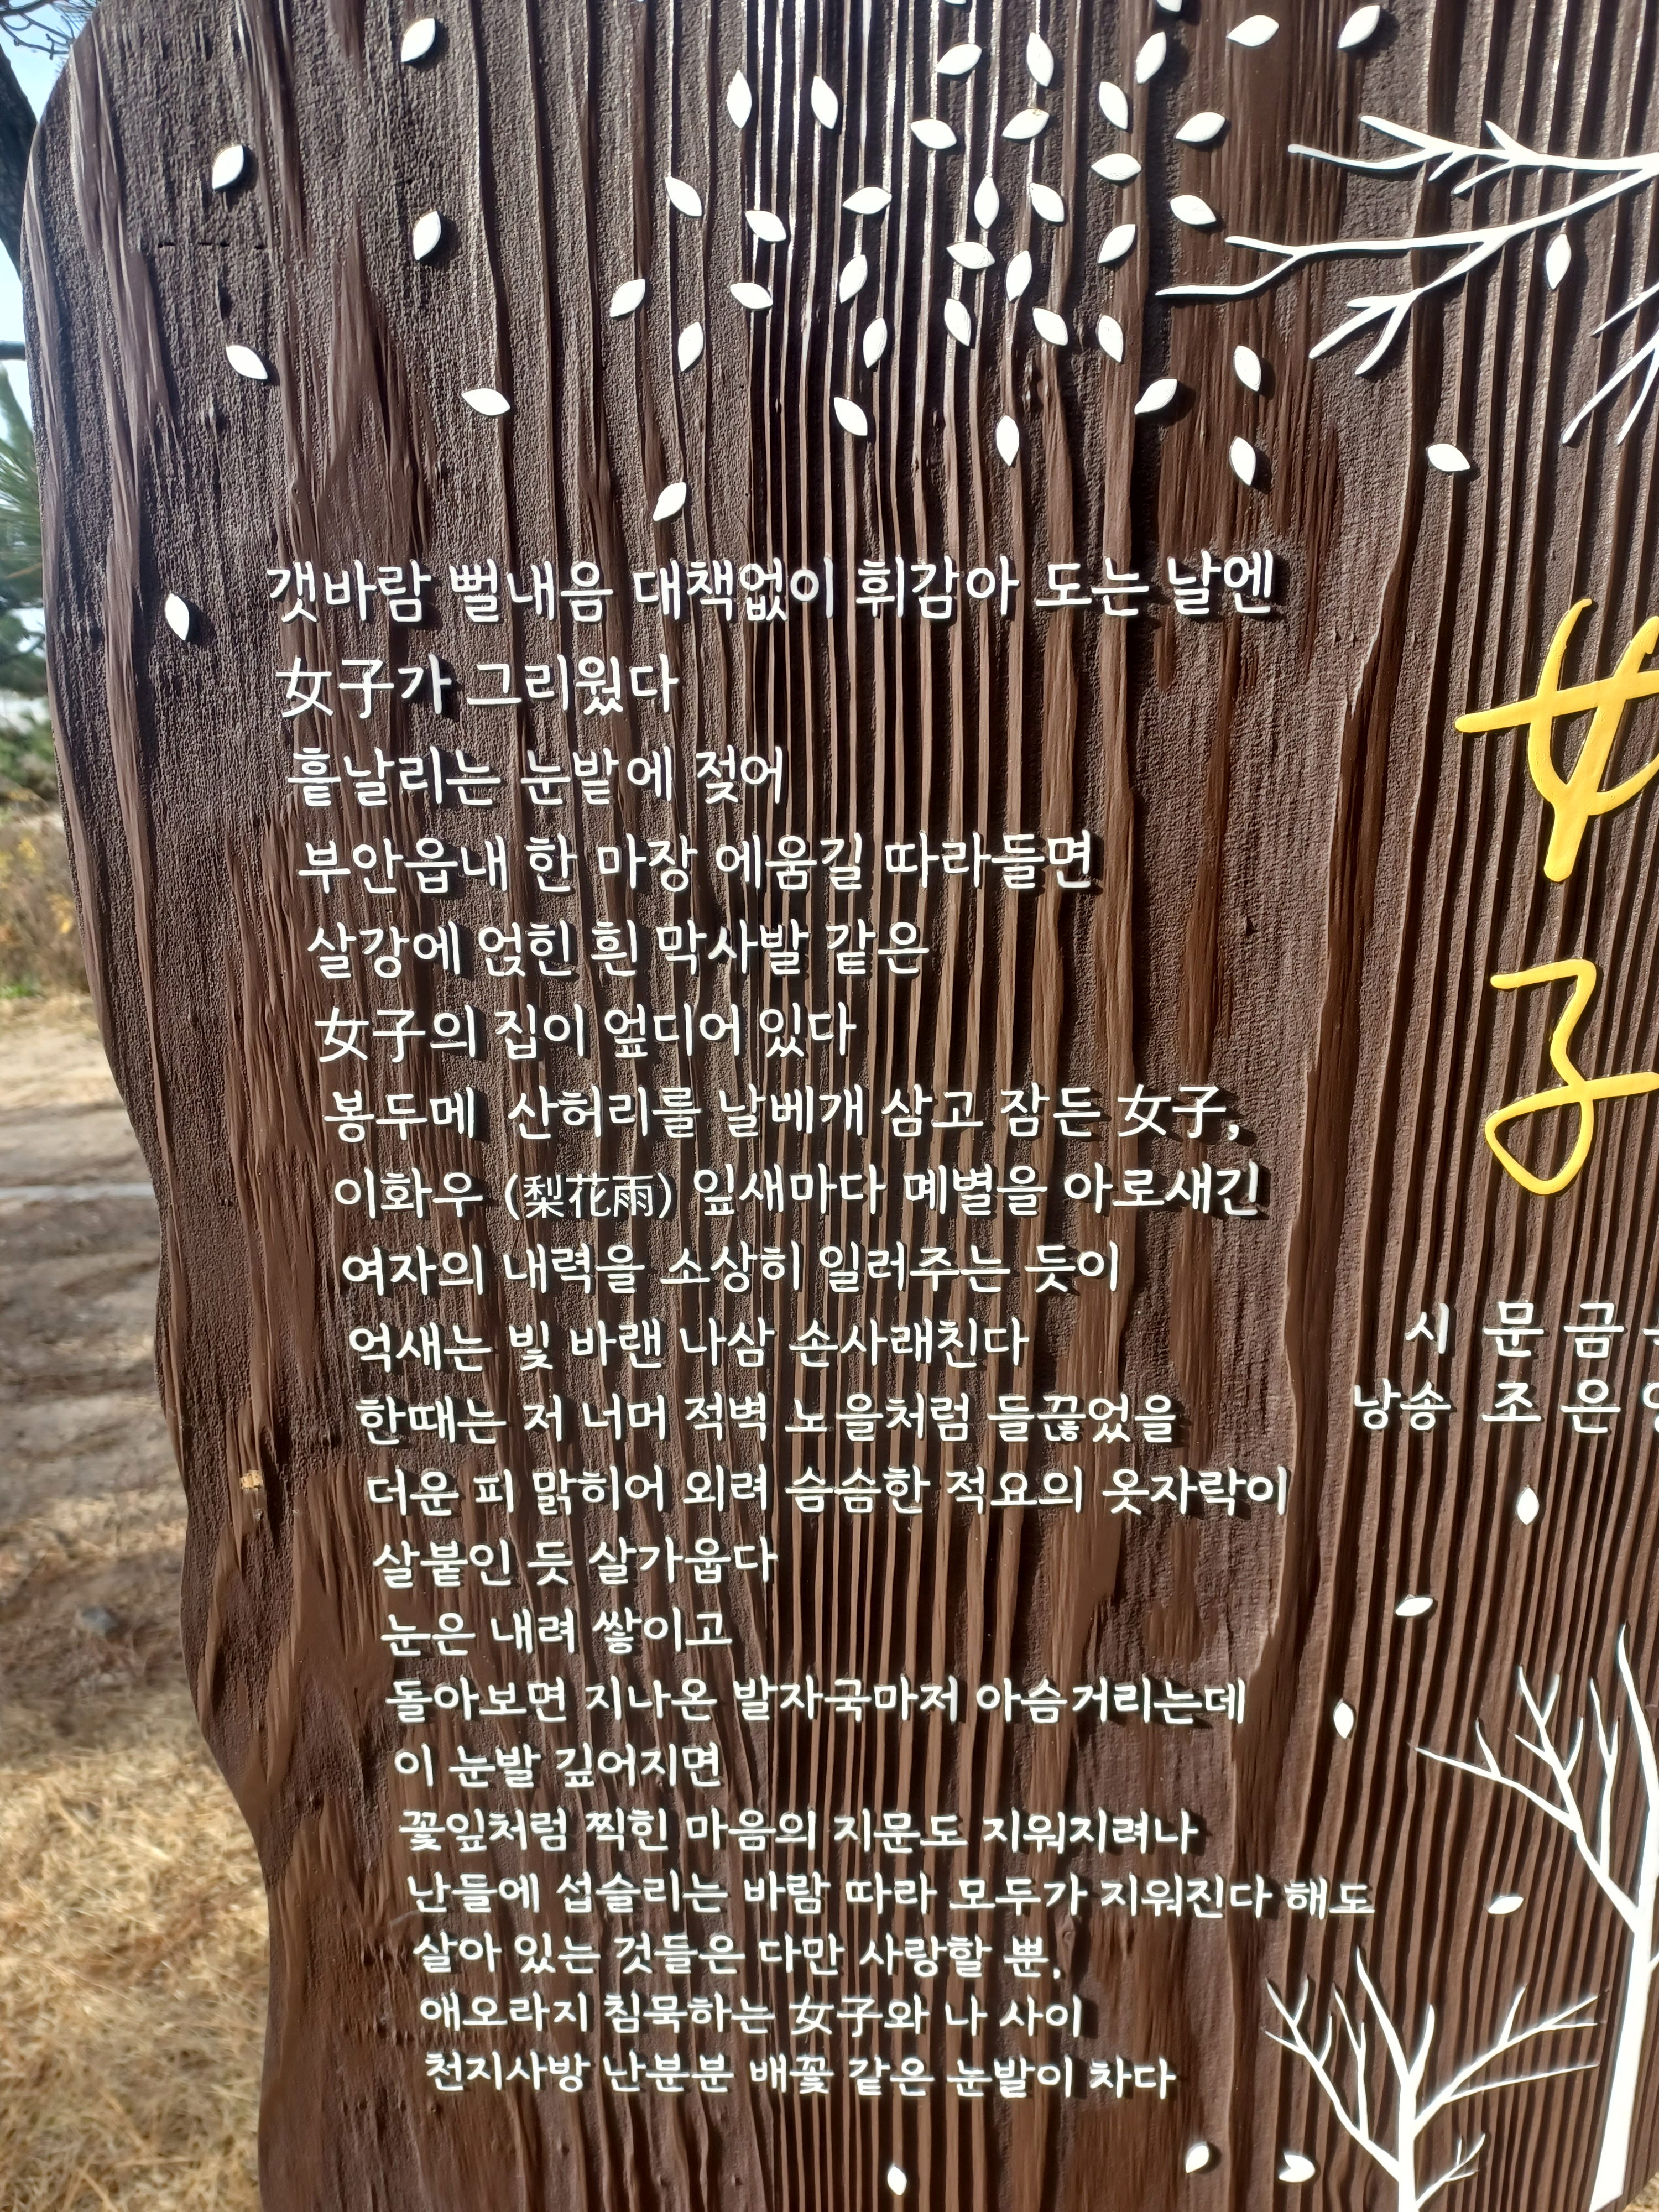 갯바람 뻘내음 대책없이 휘감아 도는 날엔
女子가 그리웠다
흩날리는 눈밭에 젖어
부안읍내 한 마장 에움길 따라들면
살강에 얹힌 흰 막사발 같은
女子의 집이 엎디어 있다
봉두메 산허리를 날베개 삼고 잠든 女子,
이화우 (梨花雨) 잎새마다 몌별을 아로새긴
여자의 내력을 소상히 일러주는 듯이
억새는 빛 바랜 나삼 손사래친다
한때는 저 너머 적벽 노을처럼 들끓었을
더운 피 맑히어 외려 슴슴한 적요의 옷자락이
살붙인 듯 살가웁다
눈은 내려 쌓이고
돌아보면 지나온 발자국마저 아슴거리는데
이 눈발 깊어지면
꽃잎처럼 찍힌 마음의 지문도 지워지려나
난들에 섭슬리는 바람 따라 모두가 지워진다 해도
살아 있는 것들은 다만 사랑할 뿐,
애오라지 침묵하는 女子와 나 사이
천지사방 난분분 배꽃 같은 눈발이 차다
子
시 문 금
낭송 조 은